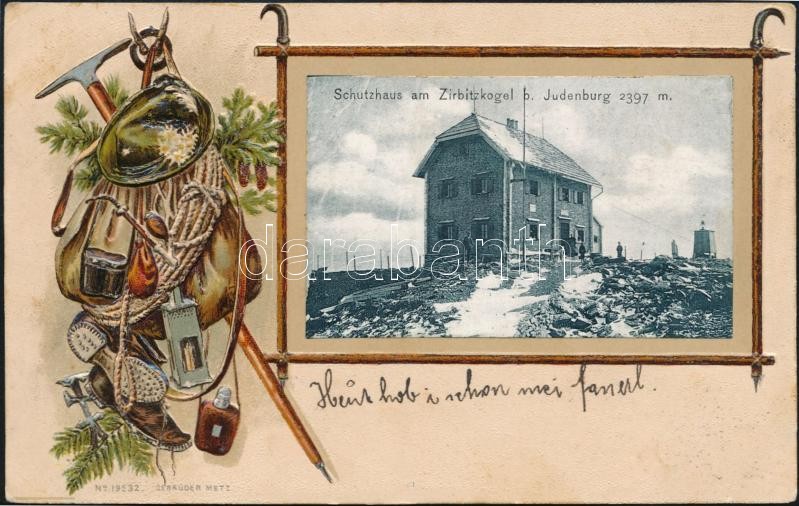 Schutzhaus am Zirbitzkogel b. Judenburg 2397 m.
darabanth.com
Heut hob i schon mei
No. 19532. GEBRÜDER METZ